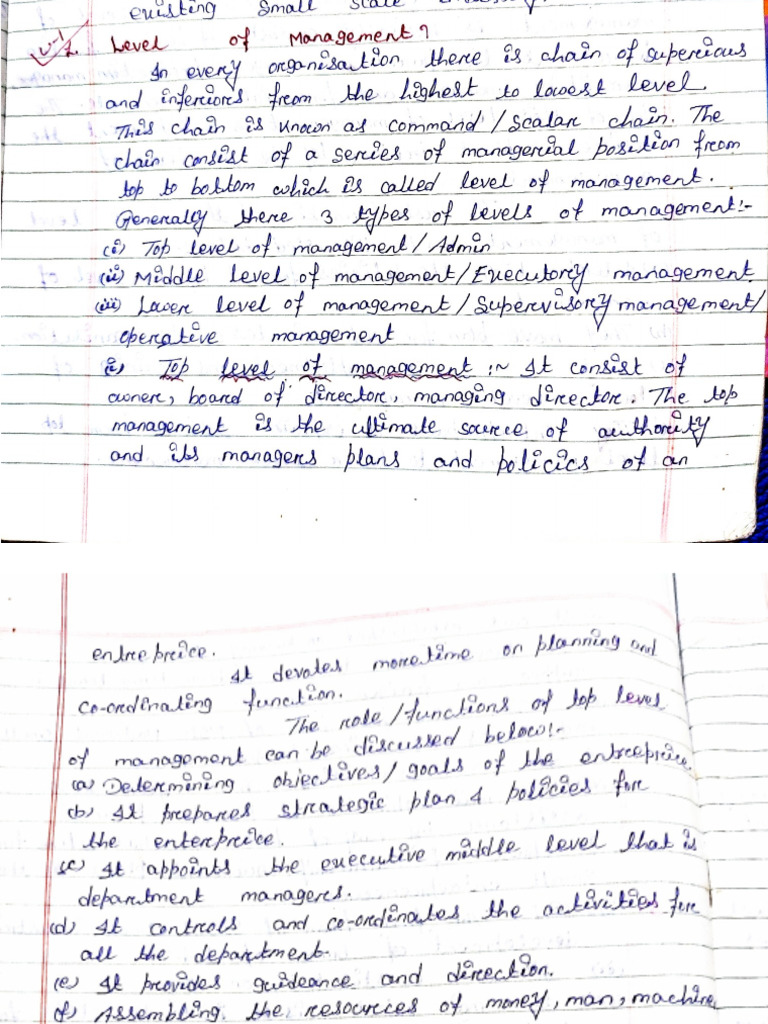 existing Small Scale
U-1
2. Level of Management?
In every organisation there is chain of supericious
and inferiors from the highest to lowest level.
This chain is known as command/Scalar chain. The
chain consist of a series of managerial position from
top to bottom which is called level of management.
Generally there 3 types of levels of management:-
(i) Top level of management/Admin
(ii) Middle level of management/Executory management.
(iii) Lower level of management/Supervisory management/
Operative management
(i) Top level of management :~ It consist of
owner, board of director, managing director. The top
management is the ultimate source of authority
and its managers plans and policics of an
entreprice.
It devotes more time on planning and
co-ordinating function.
The role/functions of top level
of management can be discussed below:-
(a) Determining objectives/goals of the entreprice.
(b) It prepares strategic plan & policies for
the enterpreice.
(c) It appoints the executive middle level that is
department managers.
(d) It controls and co-ordinates the activities for
all the department.
(e) It provides guideance and direction.
(f) Assembling the resources of money, man, machine,